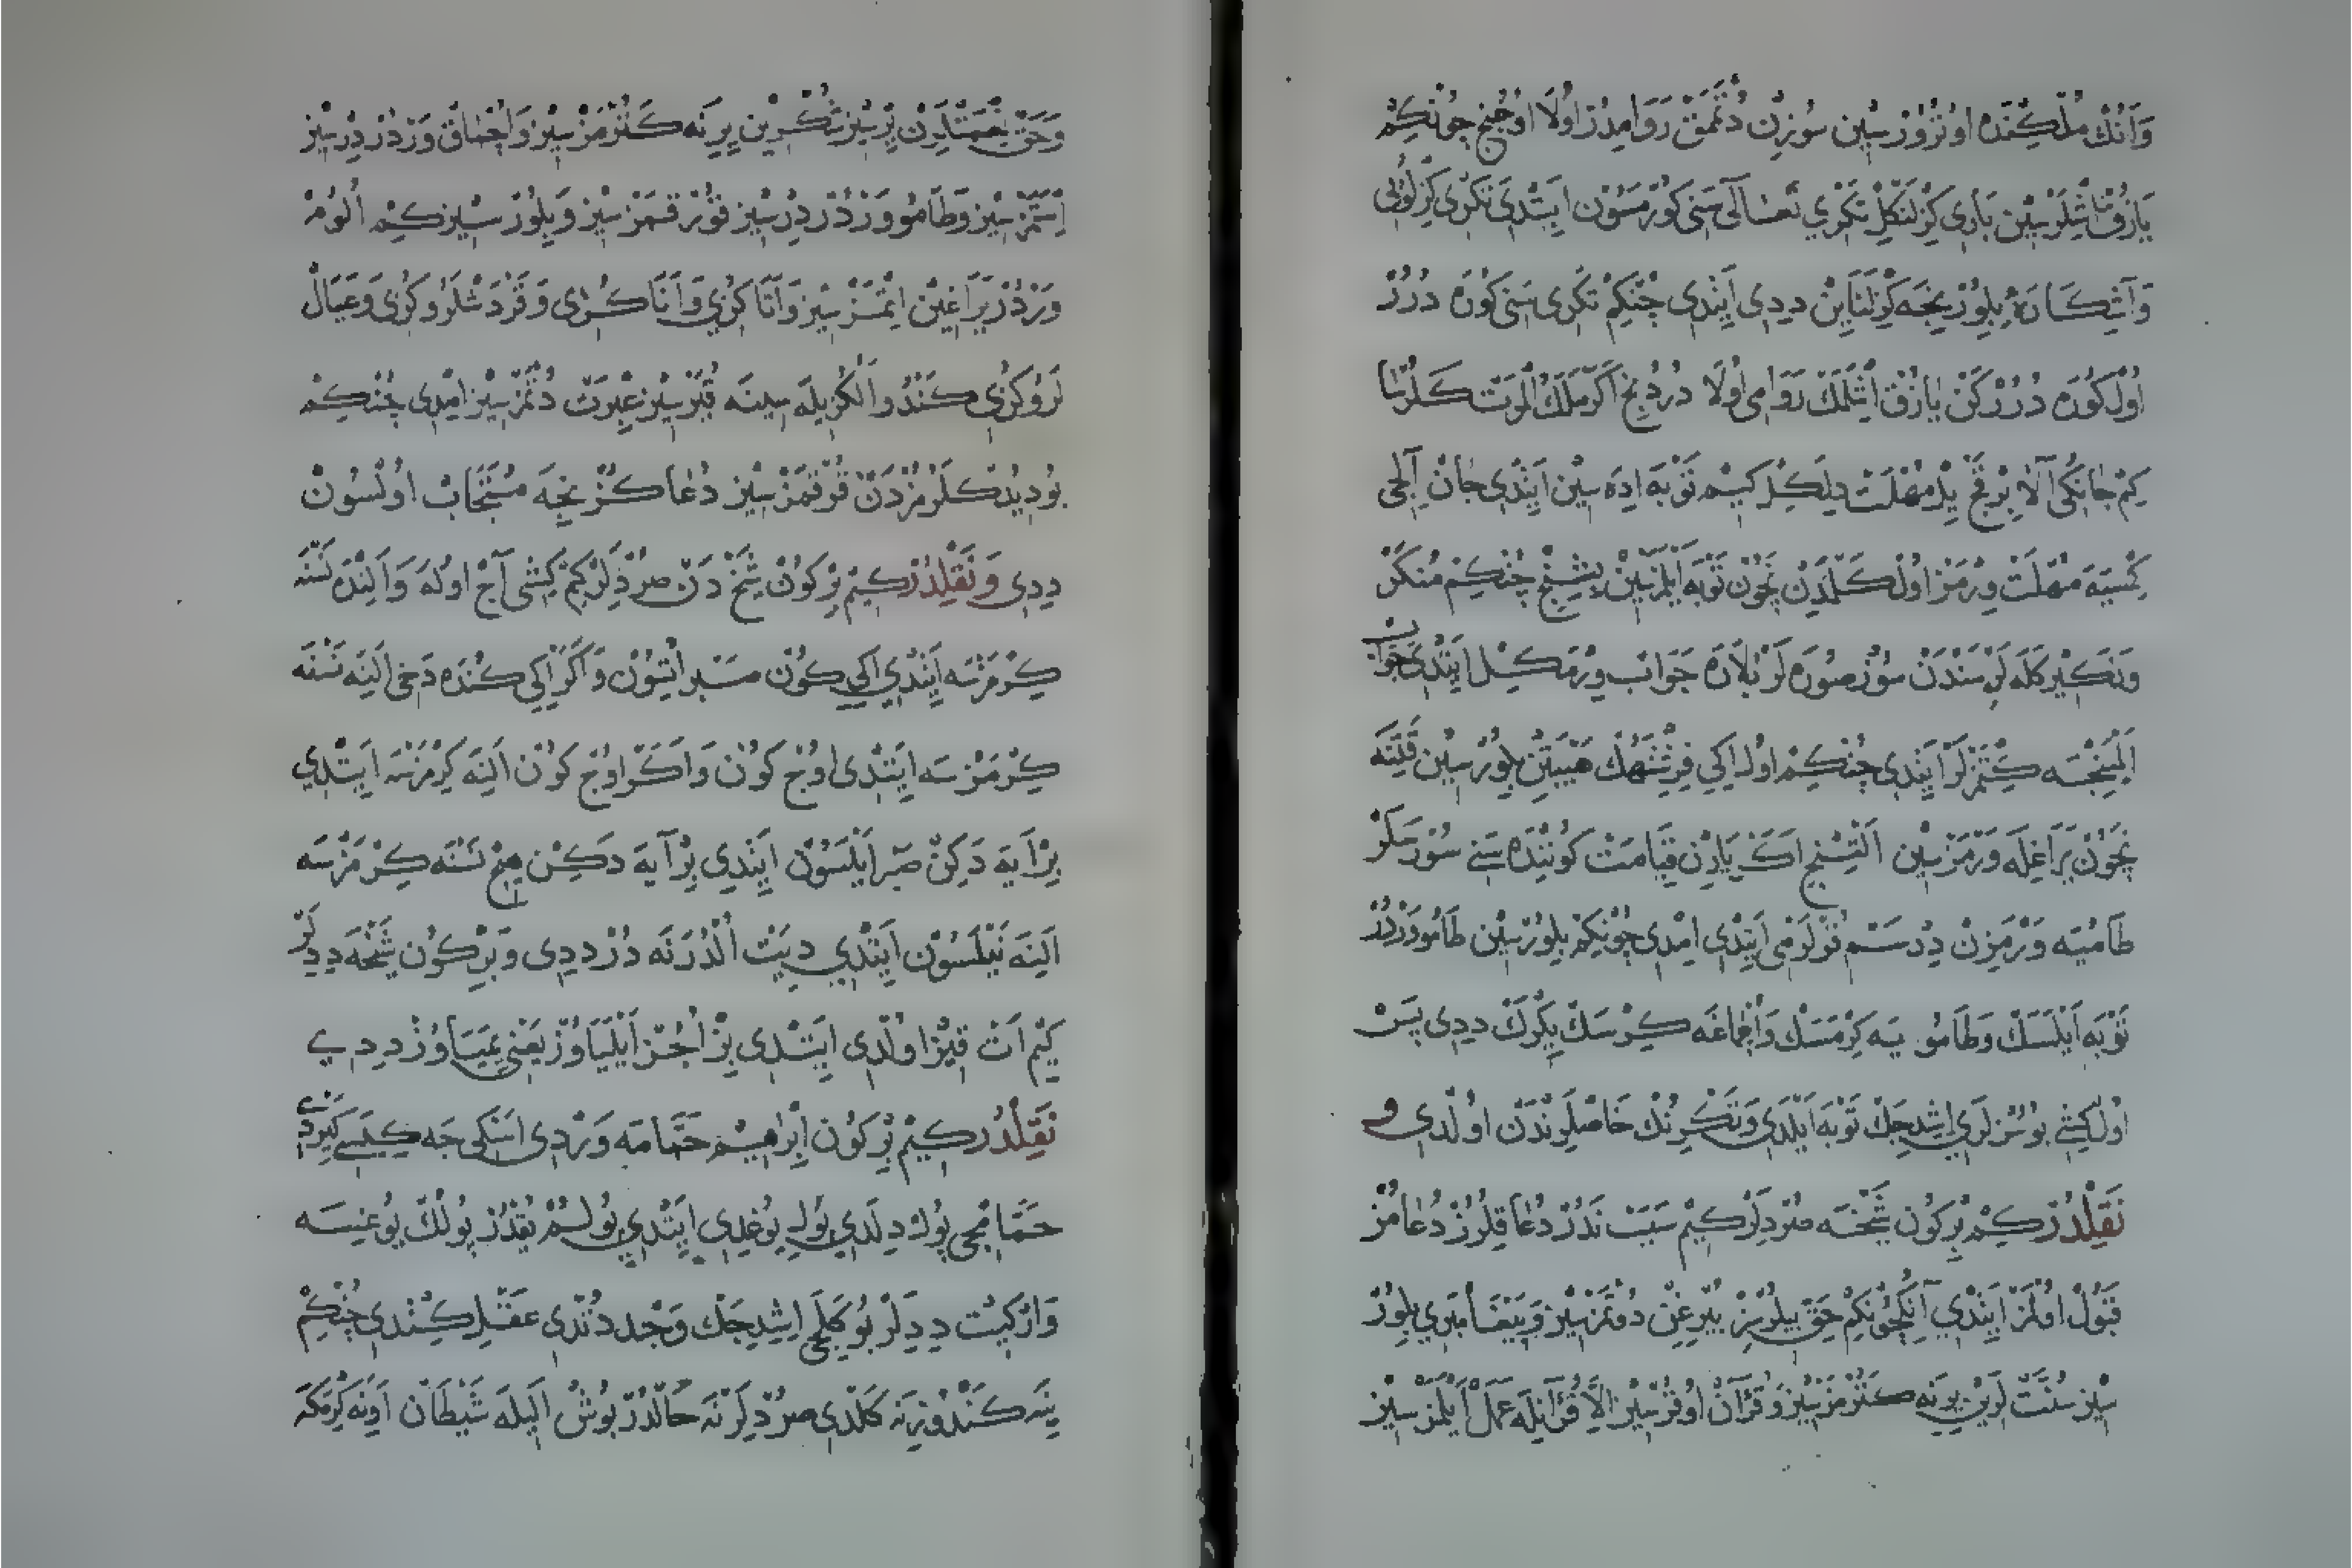 وَانُكْ مُلْكِنْدَه اوتُرُوُرْسِينْ سُوزِنْ دُتْمَمَقْ رَوَامِدُرْ اوُلَا اوُجُنْجِ چُونْكِمْ
يَازُقْ اِشْلَرْسِينْ بَارِي كِزْلَنْكِلْ تَنْكْرِي تَعَالَى سَنِي كُورْمَسُونْ اَيِتْدِي تَنْكْرِي كِزْلُويِي
وَآشْكَارَهْ بِلُورْ نِجَه كِزْلَنَايِنْ دِدِي اَيِتْدِي چُنْكِمْ تَنْكْرِي سَنِي كُورَه دُرُرْ
اوُلْ كُورَه دُرُرْكَنْ يَازُقْ اِشْلَمَكْ رَوَامِي اوُلَا دُرْدُنْجِ اَكَرْ مَلَكُ الْمَوْتْ كَلُرْسَا
كِمْ جَانِكِي آلَا بِرْقَچْ يِلْ مُهْلَتْ دِلَكِلْ كِيمْ تَوْبَه اِدَه سِينْ اَيِتْدِي جَانْ آلِجِي
كِمْسَيَه مُهْلَتْ وِرْمَزْ اوُلْ كَلْمَدَنْ نِچُونْ تَوْبَه اَيْلَمَزْسِينْ بِشِنْجِ چُنْكِمْ مُنْكَرْ
وَنَكِيرْ كَلَه لَرْ سَنْدَنْ سُوزْ صُورَه لَرْ بُلَارَه جَوَابْ وِرْمَكِلْ اَيِتْدِي جَوَابْ
اَلْمَيِنْجَه كِتْمَزْلَرْ اَيِتْدِي چُنْكِمْ اوُلْ اِكِي فِرِشْتَهْنُكْ هَيْبَتِنْ بِلُورْسِينْ قَتِنَه
نِچُونْ يَرَاغِلَه وَرْمَزْسِينْ اَلْتِنْجِ اَكَرْ يَارِنْ قِيَامَتْ كُونِنْدَه سَنِي سُورَه لَرْ
طَامُيَه وَرْمَزِنْ دِرْسَمْ قُوُلَرْمِي اَيِتْدِي اِمْدِي چُونْكِمْ بِلُورْسِينْ طَامُو وَرْدُرْ
تَوْبَه اَيْلَسَكْ وَطَامُو يَه كِرْمَسَكْ وَاُچْمَاغَه كِرْسَكْ يِكْرَكْ دِدِي پَسْ
اوُلْ كِشِي بُو سُوزْلَرِي اِشِدِجَكْ تَوْبَه اَيْلَدِي وَتَنْكْرِنُكْ خَاصْلَرِنْدَنْ اوُلْدِي وَ
نَقِلْدُرْ كِمْ بِرْكُونْ شَيْخَه صُرْدِلَرْ كِيمْ سَبَبْ نَدُرْ دُعَا قِلُرُزْ دُعَامُزْ
قَبُولْ اوُلْمَزْ اَيِتْدِي آنِكْچُونْكِمْ حَقِّ بِيلُرْسِزْ بُيُرُغِنْ دُتْمَزْسِيزْ وَپَيْغَامْبَرِي بِلُورْ
سِيزْ سُنَّتْلَرِينْ يِرِنَه كَتُرْمَزْسِيزْ وَقُرْآنْ اوُقُرْسِيزْ اِلَّا قُرْآنِلَه عَمَلْ اَيْلَمَزْسِيزْ
وَحَقِّ نِعْمَتْلَرِنْ يِرْسِيزْ شُكْرِينْ يِرِينَه كَتُرْمَزْسِيزْ وَاُچْمَاقْ وَرْدُرْ دِرْسِيزْ
اِسْتَمَزْسِيزْ وَطَامُو وَرْدُرْ دِرْسِيزْ قُورْقْمَزْسِيزْ وَبِلُورْسِيزْ كِمْ اُلُومْ
وَرْدُرْ يَرَاغِينْ اِتْمَزْسِيزْ وَآتَا كُزِي وَاَنَا كُزِي وَقَرْدَشْلَرُو كُزِي وَعَيَالْ
لَرُو كُزِي كَنْدُو اَلُكُزِيلَه سِينَه قُيَرْسِيزْ عِبْرَتْ دُتْمَزْسِيزْ اِمْدِي چُنْكِمْ
بُو دِيدُكْلَرُمُزْدَنْ قُورْقْمَزْسِيزْ دُعَاكُزْ نِجَه مُسْتَجَابْ اوُلْسُونْ
دِدِي وَنَقِلْدُرْ كِيمْ بِرْكُونْ شَيْخْدَنْ صُرْدِلَرْ كِمْ كِشِي آجْ اوُلَه وَاَلِنْدَه نَسْنَه
كِرْمَزْسَه اَيِتْدِي اِكِي كُونْ صَبْرْ اِتْسُونْ وَاَكَرْ اِكِي كُنْدَه دَخِي اَلِنَه نَسْنَه
كِرْمَزْسَه اَيِتْدِي اوُچْ كُونْ وَاَكَرْ اوُچْ كُونْ اَلِنَه كِرْمَزْسَه اَيِتْدِي
بِرْ آيَه دَكِنْ صَبْرْ اَيْلَسُونْ اَيِتْدِي بِرْ آيَه دَكِنْ هِيچْ نَسْنَه كِرْمَزْسَه
اَلِنَه نَيْلَسُونْ اَيِتْدِي دِيَتْ اُلْدُرَنَه دُرْ دِدِي وَبِرْكُونْ شَيْخَه دِدِلَرْ
كِيمْ اَتْ قِيزْ اوُلْدِي اَيِتْدِي بِزْ اُجُزْ اَيْلَيَاوُزْ يَعْنِي يِمَيَاوُزْ دِدِي
نَقِلْدُرْ كِيمْ بِرْكُونْ اِبْرَاهِيمْ حَمَّامَه وَرْدِي اَسْكِي جَه كِيسِي كِيرْدِي
حَمَّامْجِي پُولْ دِلَدِي پُولِ يُوغِدِي اَيِتْدِي پُولُمْ يُقْدُرْ پُولُكْ يُوغِيسَه
وَارْ كِيتْ دِدِلَرْ بُو كَلَجِي اِشِدِجَكْ وَجْد دُتْدِي عَقْلِ كِتْدِي چُنْكِمْ
يِنَه كَنْدُوزِنَه كَلْدِي صُرْدِلَرْ نَه حَالْدُرْ بُوشْ اَلِيلَه شَيْطَانْ اَوِنَه كِرْمَكَه